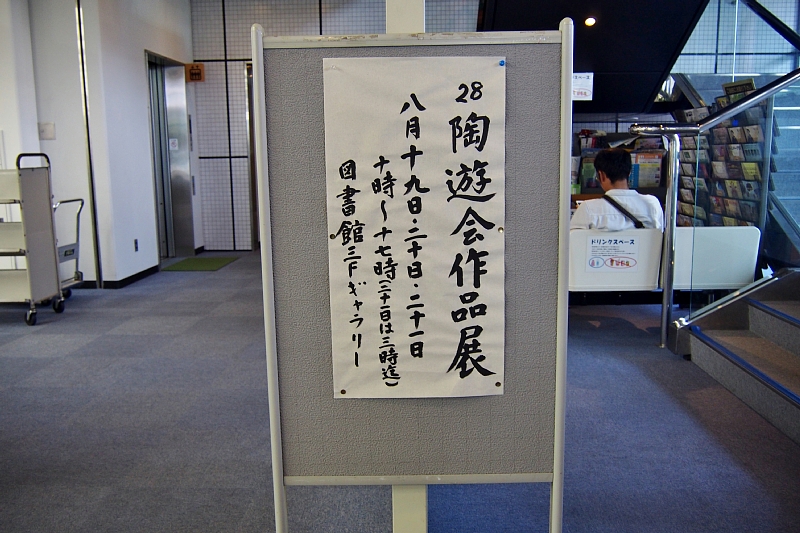 28 陶遊会作品展
八月十九日・二十日・二十一日
十時～十七時(二十一日は三時迄)
図書館二Fギャラリー
ドリンクスペース